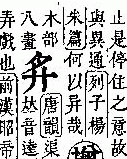 止是停住之意故
與異通列子楊
朱篇何以异哉
木部
八畫
唐韻渠
𠀤音達
弄戲也前漢昭帝